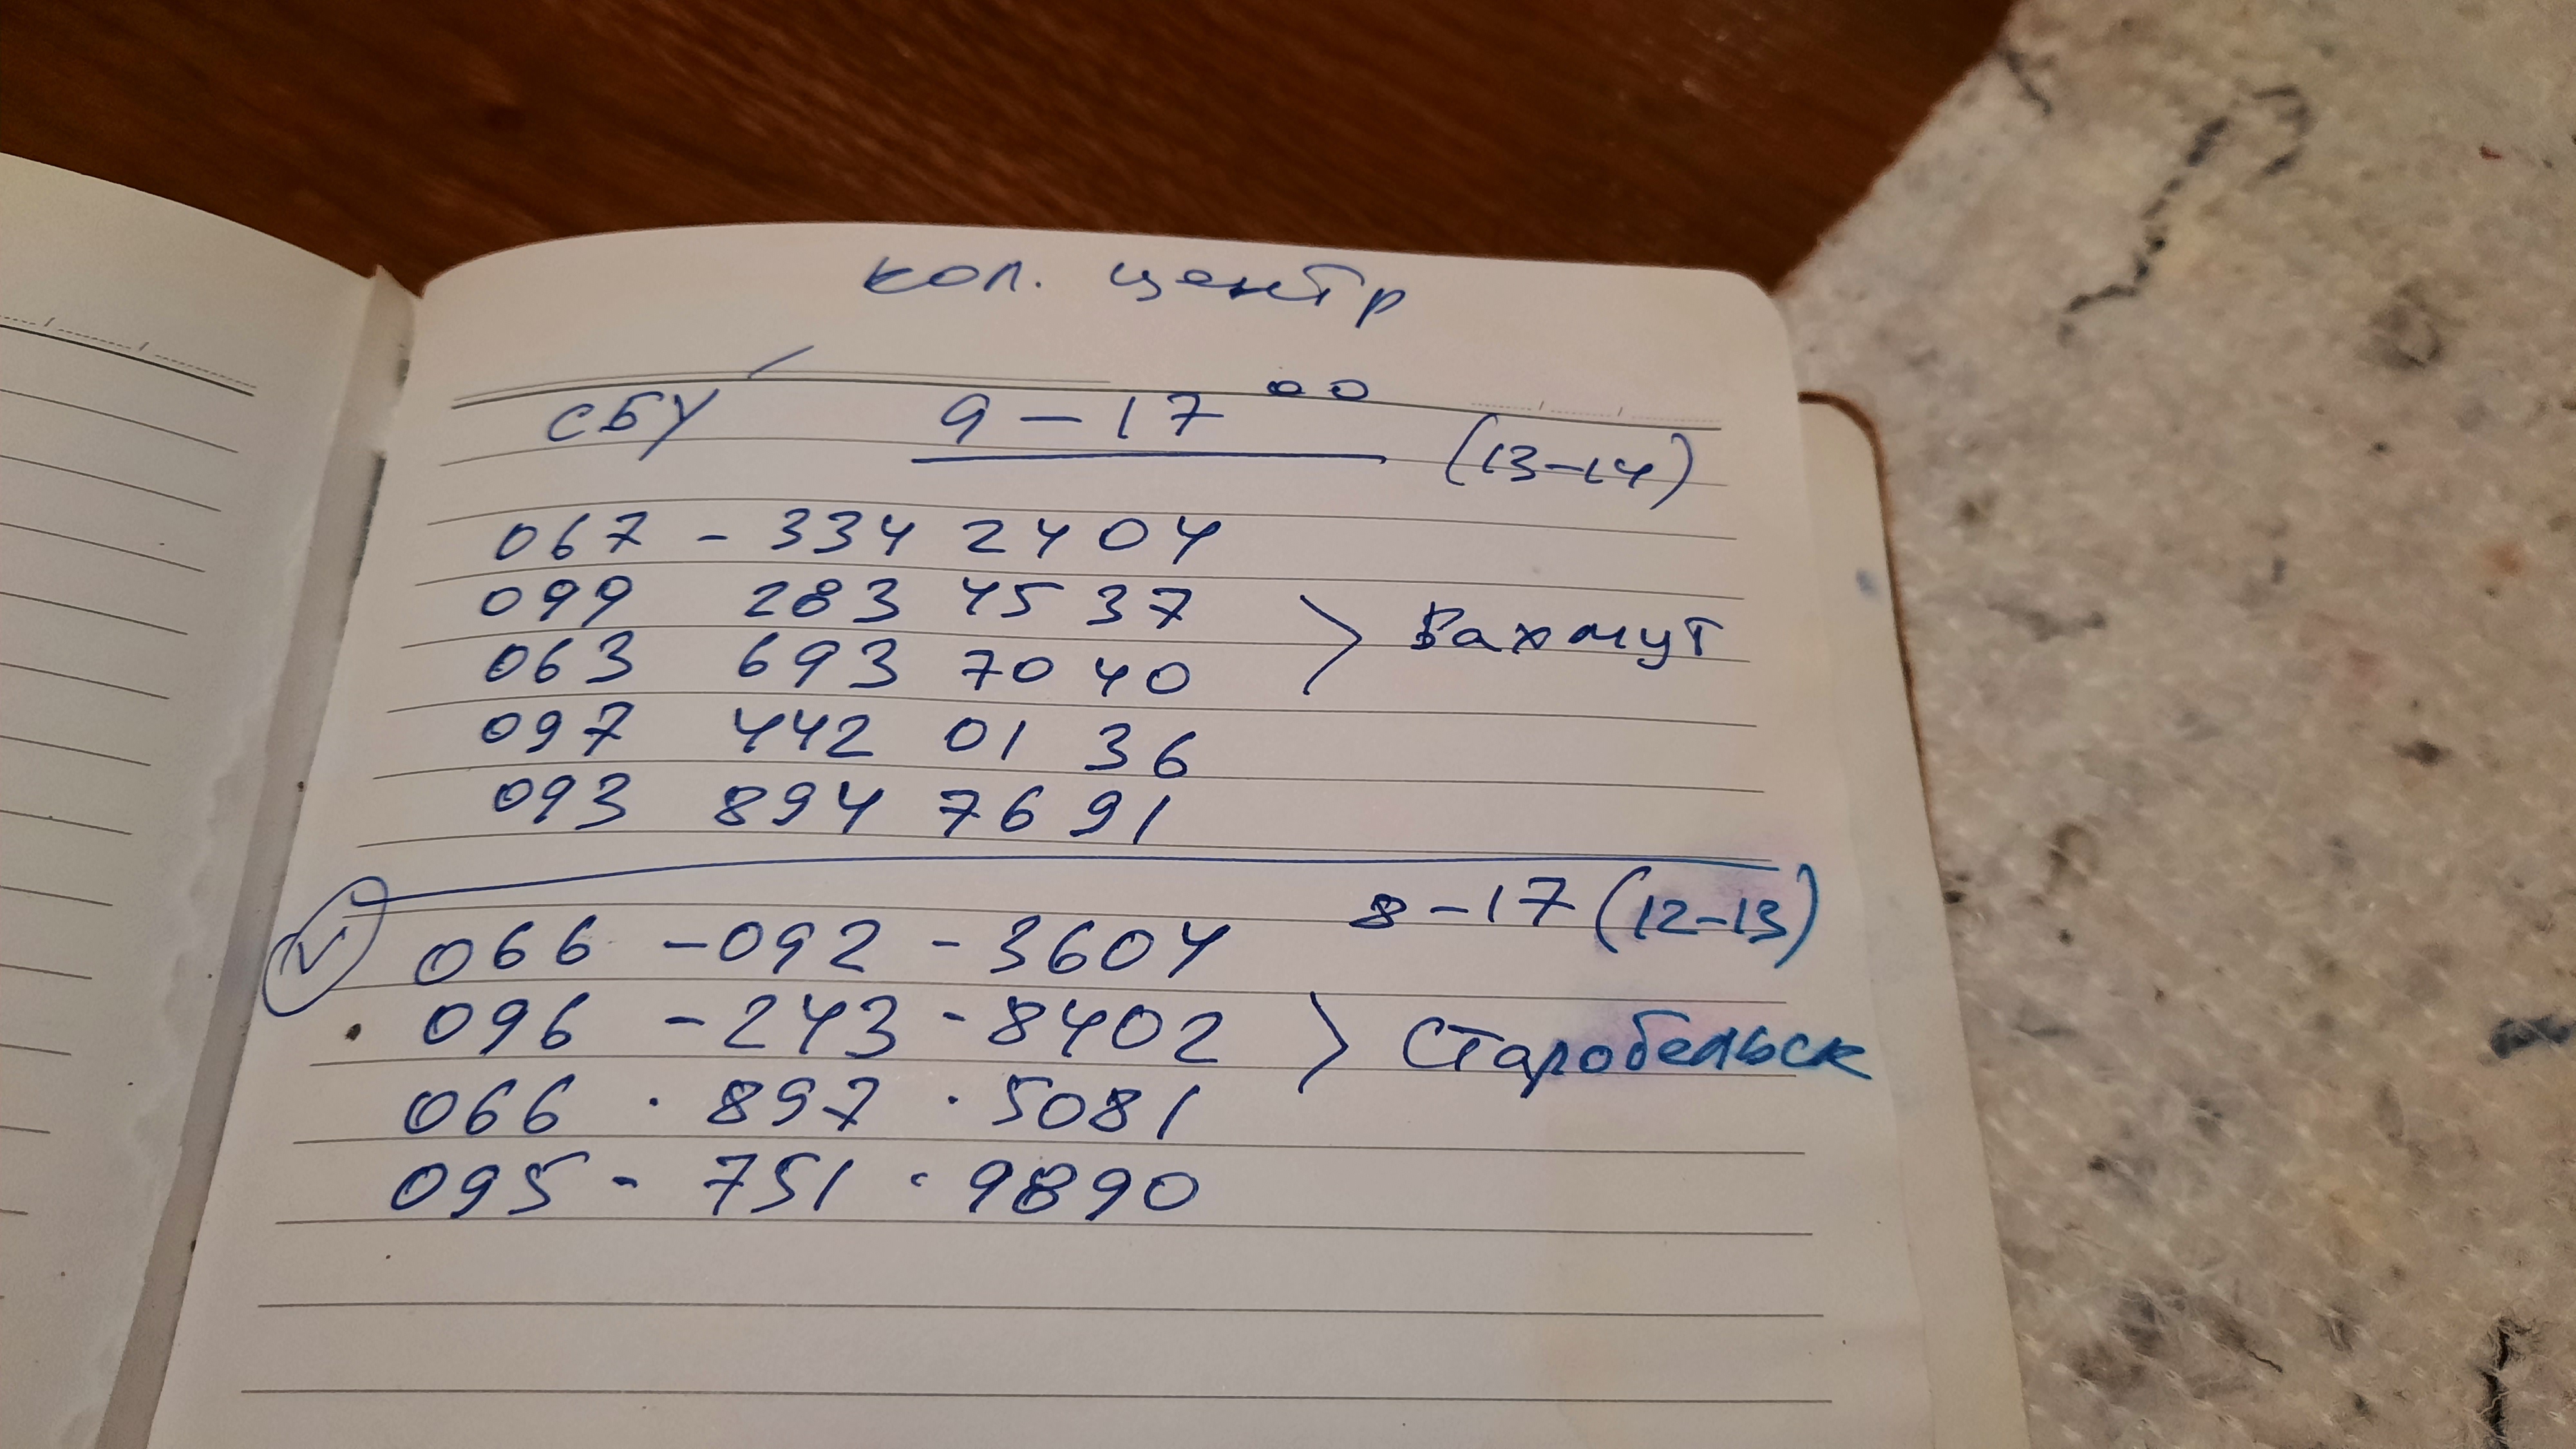 кол. центр
СБУ 9-17 00 (13-14)
067 - 334 24 04
099 283 45 37
063 693 70 40 > Бахмут
097 442 01 36
093 894 76 91
8-17 (12-13)
066 - 092 - 3604
096 - 243 - 8402 > Старобельск
066 · 897 · 5081
095 - 751 · 9890